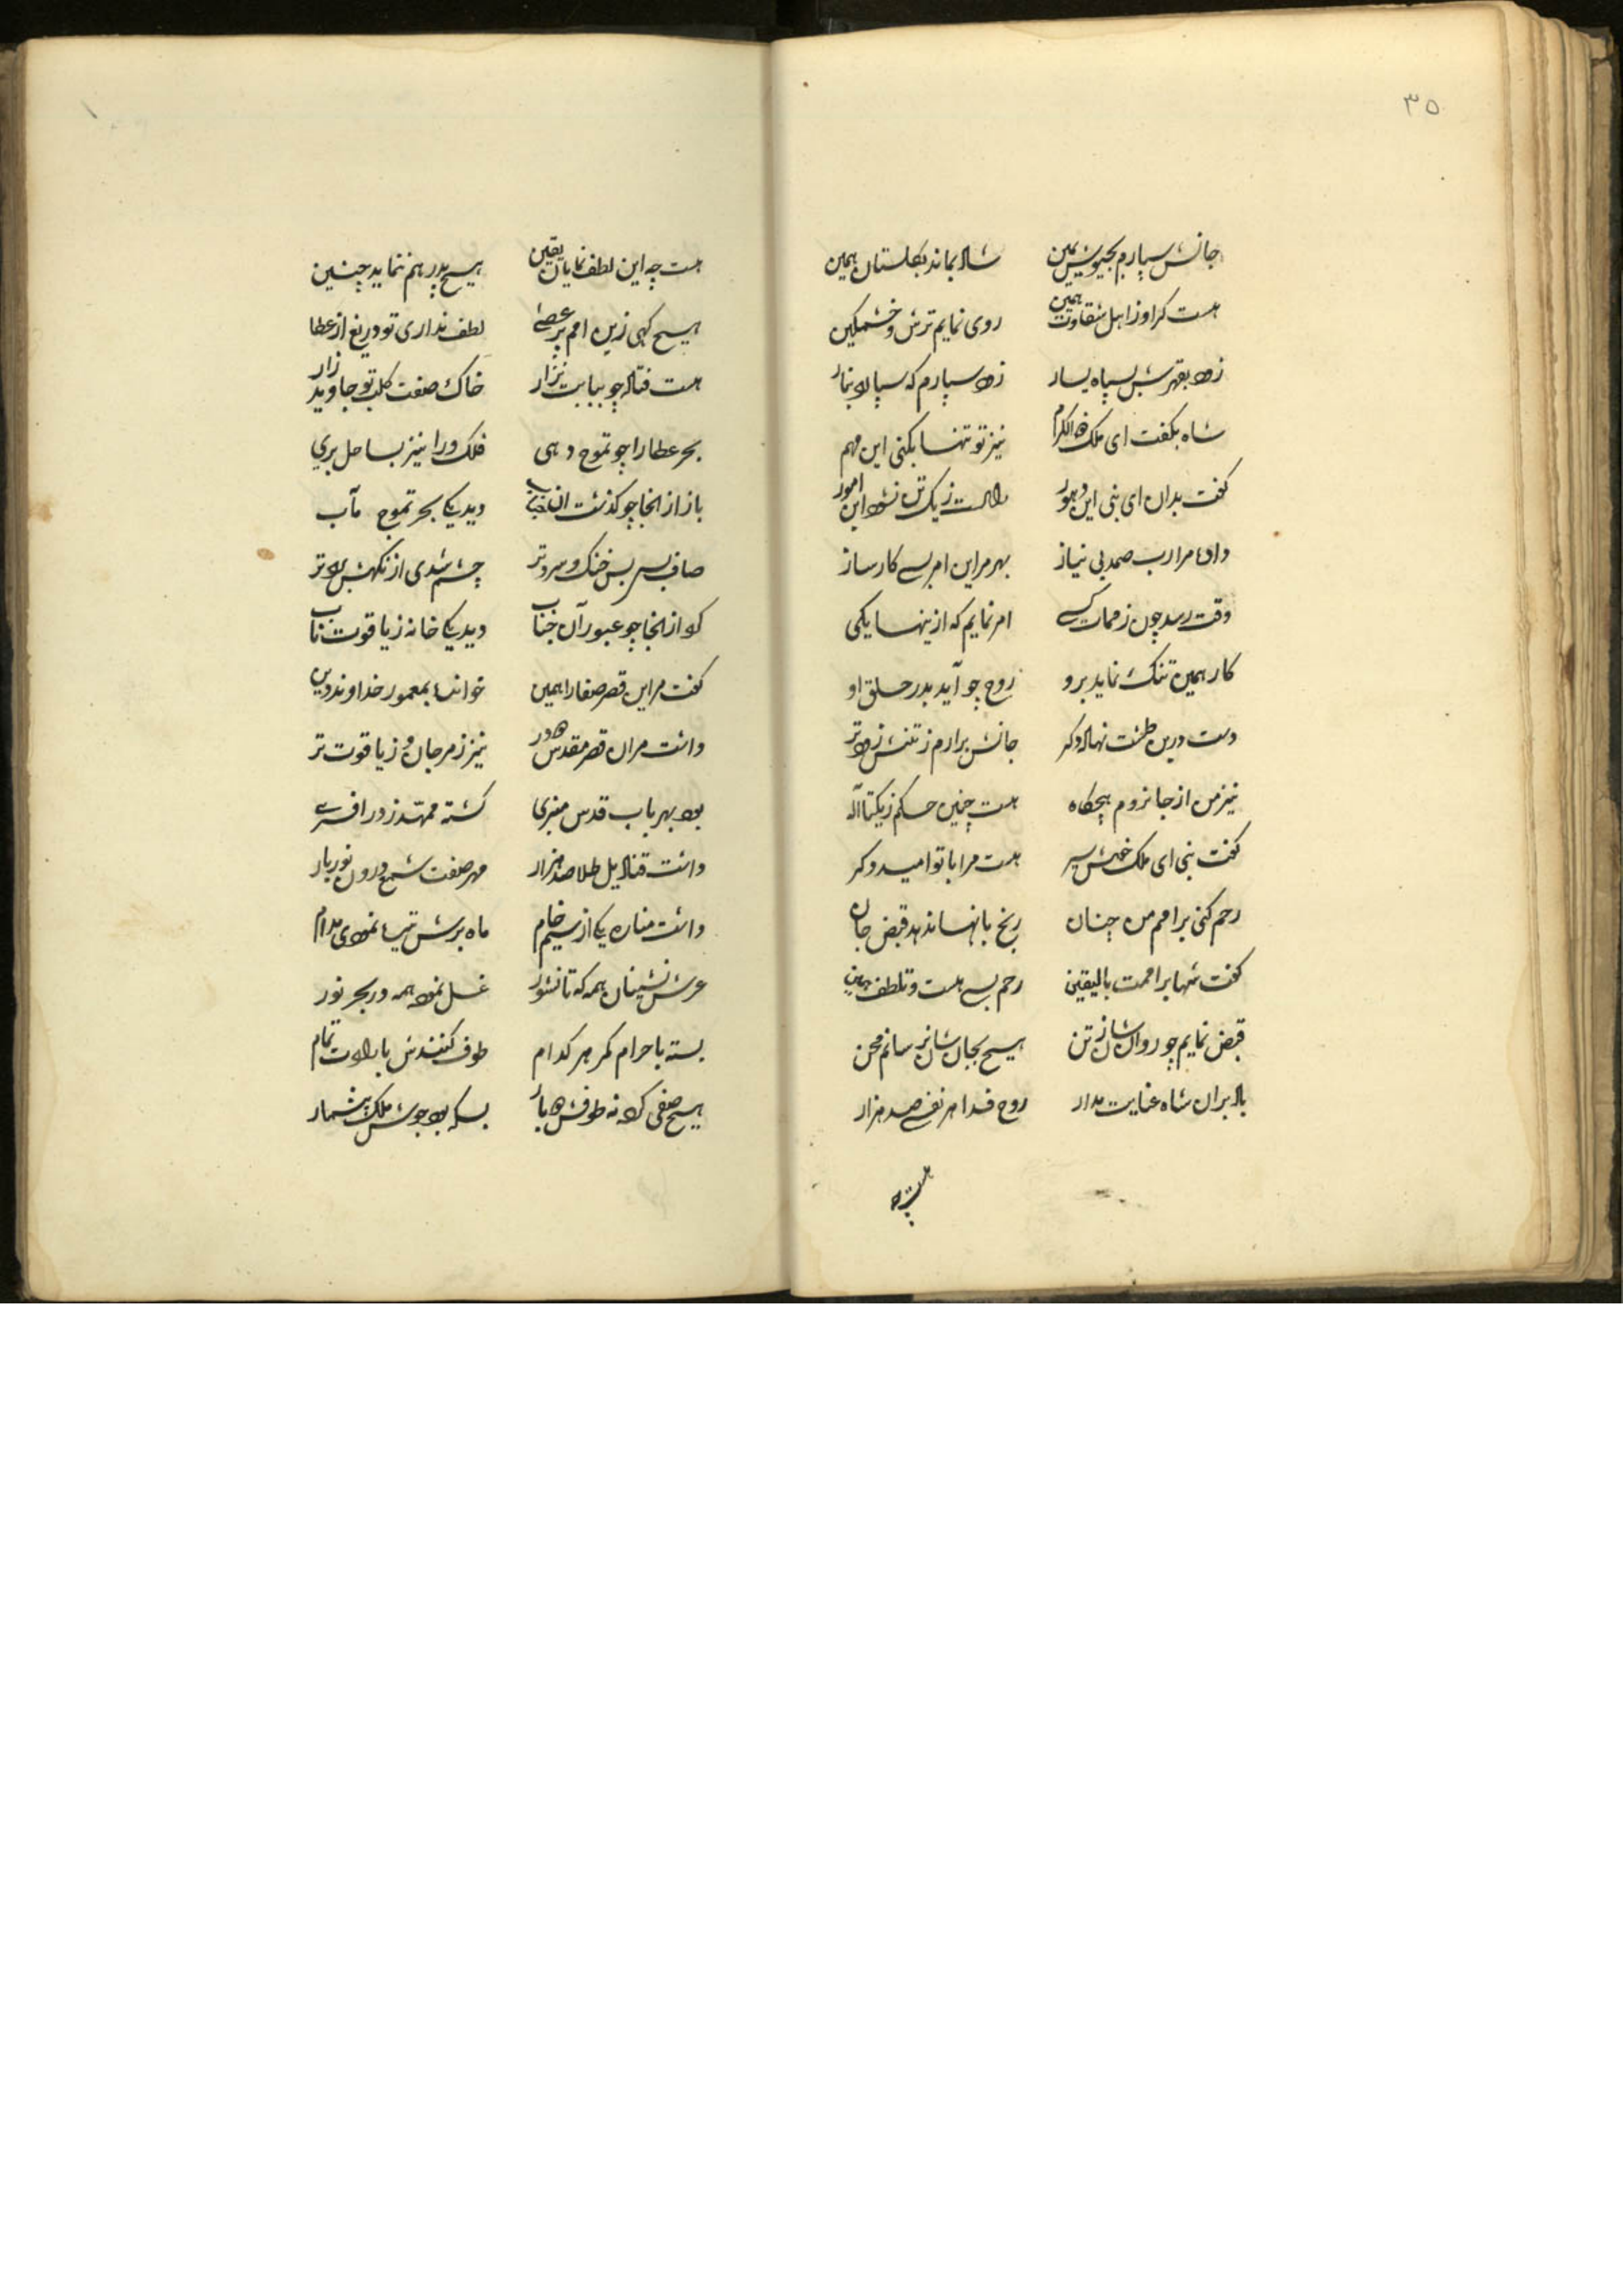 ۳۵
جانش سپارم بجیوش یمین شاد بماند بگلستان همین
هست گر او ز اهل شقاوت همین روی نمایم ترش و خشمگین
زود بقهرش بسپاه یسار زود سپارم که سپارد بنار
شاه بگفت ای ملک ذو الکرام نیز تو تنها بکنی این مهم
گفت بدان ای نبی این زیک تن نشود این امور
داده مرا رب صمد بی نیاز بهر مر این امر بسے کارساز
وقت رسد چون ز ممات کسے امر نمایم که ازینها یکی
کار همین تنک نماید برو روح چو آید بدر حلق او
دست درین طشت نهاده دکر جانش برارم ز تنش زودتر
نیز من از جا نروم هیچکاه هست چنین حکم ز یکتا آله
گفت نبی ای ملک خوش سیر هست مرا با تو امید دکر
رحم کنی بر امم من چنان رنج بانها ندهد قبض جان
گفت شها بر اممت بالیقین رحم بسے هست و تلطف همین
قبض نمایم چو روان شان ز تن هیچ بجان شان نرسانم محن
باد بران شاه عنایت مدار روح فدا هر نفسے صد هزار
هست چه
هست چه این لطف نمایان یقین هیچ پدر هم ننماید چنین
هیچ کهی زین امم پر عصے لطف نداری تو دریغ از عطا
هست فتاده چو ببابت نزار خاک صفت کلب تو جاوید زار
بحر عطا را چو تموج دهی فلک ورا نیز بساحل بری
باز ازانجا چو گذشت ان جناب دید یکا بحر تموج مآب
صاف بسے بس خنک و سردتر چشم شدی از نکهش
کرد ازانجا چو عبور آن جناب دید یکا خانه ز یاقوت ناب
گفت مر این قصر صفا را همین خوانده بمعمور خداوند دین
داشت مران قصر مقدس دو در نیز ز مرجان و ز یاقوت تر
بود بهر باب قدس منبری گشته ممهد ز در افسرے
داشت قنادیل طلا صد هزار مهر صفت شمع درون نور بار
داشت مناره یکا از سیم خام ماه برش تیره نمودی مدام
عرش نشینان همه که تا نشور غسل نموده همه در بحر نور
بسته باحرام کمر هر کدام طوف کنندش بارادت تمام
هیچ صفی کرده نه طوفش دو بار بسکه بود جوش ملک بیشمار